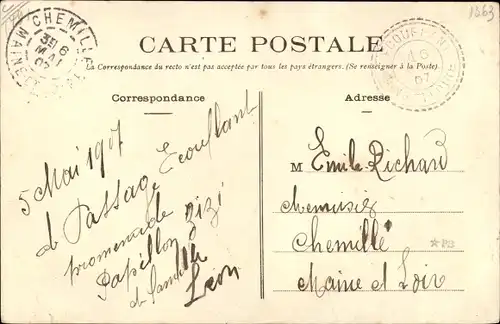 1263
CHEMILLÉ
6
MAI
07
MAINE-ET-LOIRE
CARTE POSTALE
La Correspondance du recto n'est pas acceptée par tous les pays étrangers. (Se renseigner à la Poste).
Correspondance
Adresse
5 Mai 1907
de Passage Ecouflant
promenade zizi
Papillon
de famille
Léon
M Emile Richard
Chemisier
Chemillé
Maine et Loir